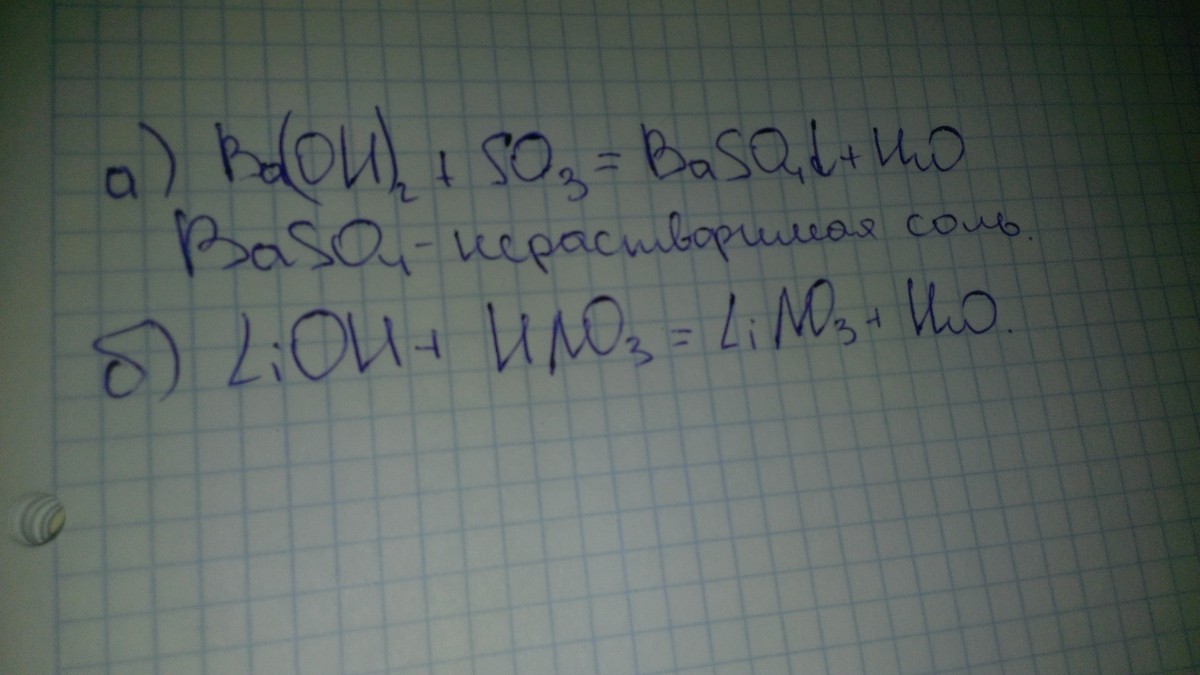 а) Ba(OH)₂ + SO₃ = BaSO₄↓ + H₂O
BaSO₄ - нерастворимая соль.
б) LiOH + HNO₃ = LiNO₃ + H₂O.